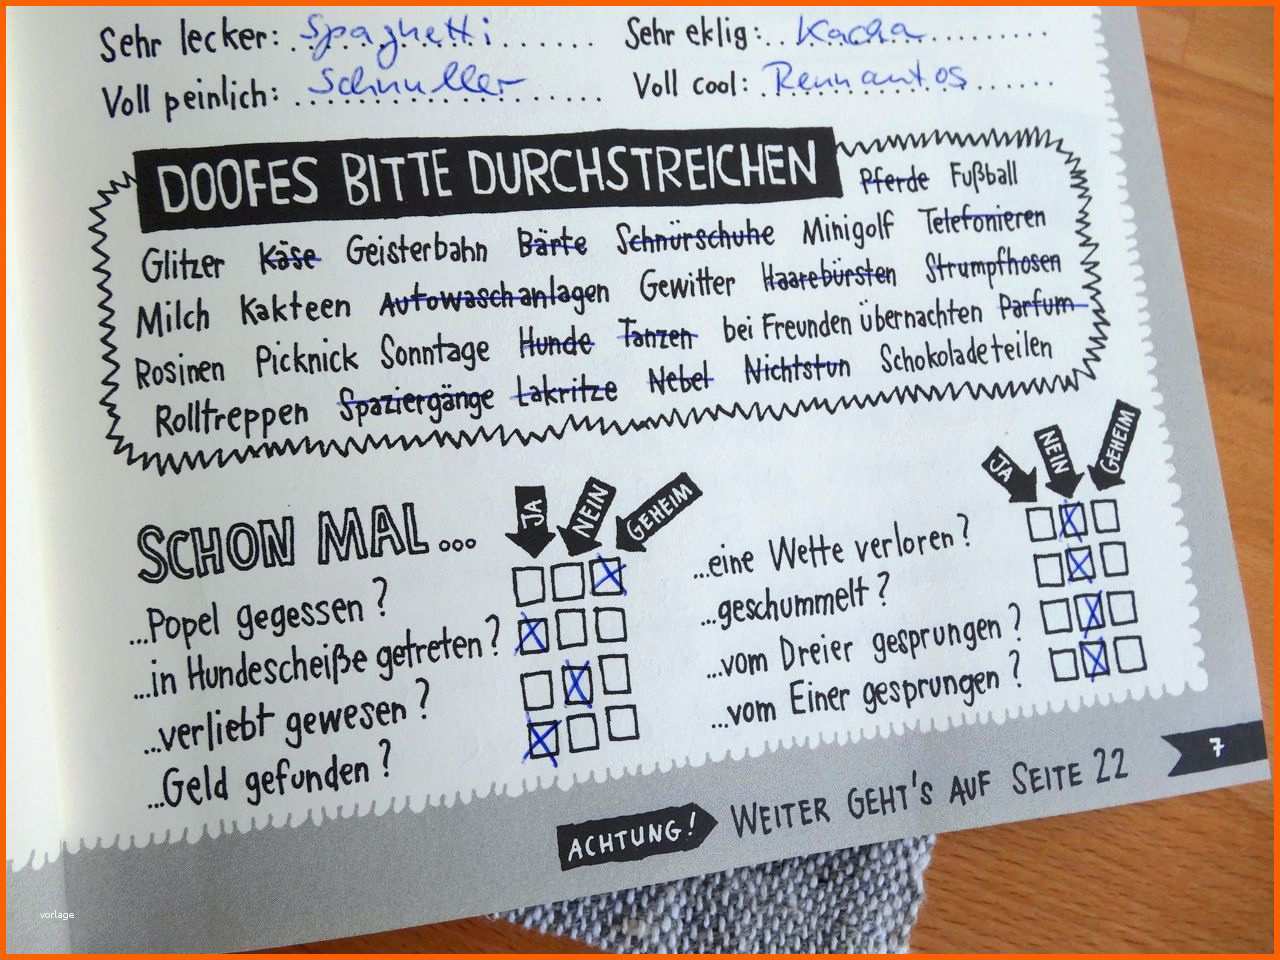 Sehr lecker: Spaghetti Sehr eklig: Kacka
Voll peinlich: Schnuller Voll cool: Rennautos
DOOFES BITTE DURCHSTREICHEN Pferde Fußball
Glitzer Käse Geisterbahn Bärte Schnürschuhe Minigolf Telefonieren
Milch Kakteen Autowaschanlagen Gewitter Haarebürsten Strumpfhosen
Rosinen Picknick Sonntage Hunde Tanzen bei Freunden übernachten Parfum
Rolltreppen Spaziergänge Lakritze Nebel Nichtstun Schokolade teilen
SCHON MAL...
JA NEIN GEHEIM
...Popel gegessen?
...in Hundescheiße getreten?
...verliebt gewesen?
...Geld gefunden?
JA NEIN GEHEIM
...eine Wette verloren?
...geschummelt?
...vom Dreier gesprungen?
...vom Einer gesprungen?
ACHTUNG! WEITER GEHT'S AUF SEITE 22
7
vorlage